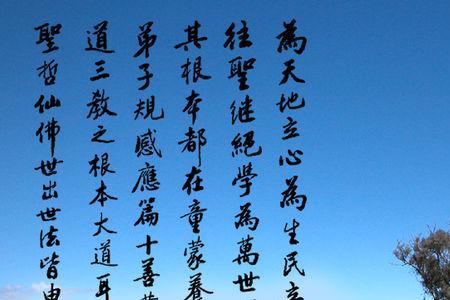 為天地立心為生民立
往聖继絕學為萬世
其根本都在童蒙養
弟子規感應篇十善業
道三教之根本大道耳
聖哲仙佛世出世法皆由